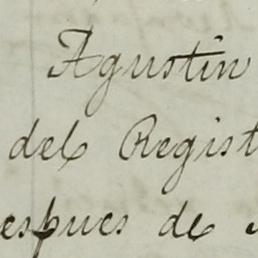 Agustin
del Regist
espues de